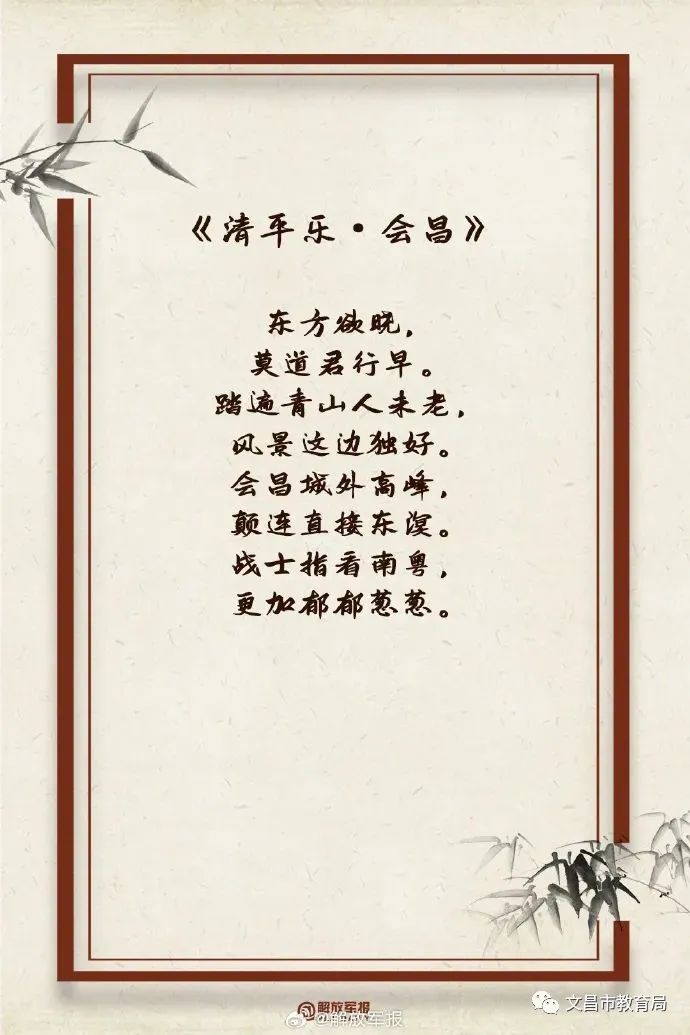 《清平乐·会昌》
东方欲晓，
莫道君行早。
踏遍青山人未老，
风景这边独好。
会昌城外高峰，
颠连直接东溟。
战士指看南粤，
更加郁郁葱葱。
@解放军报
@解放军报
文昌市教育局